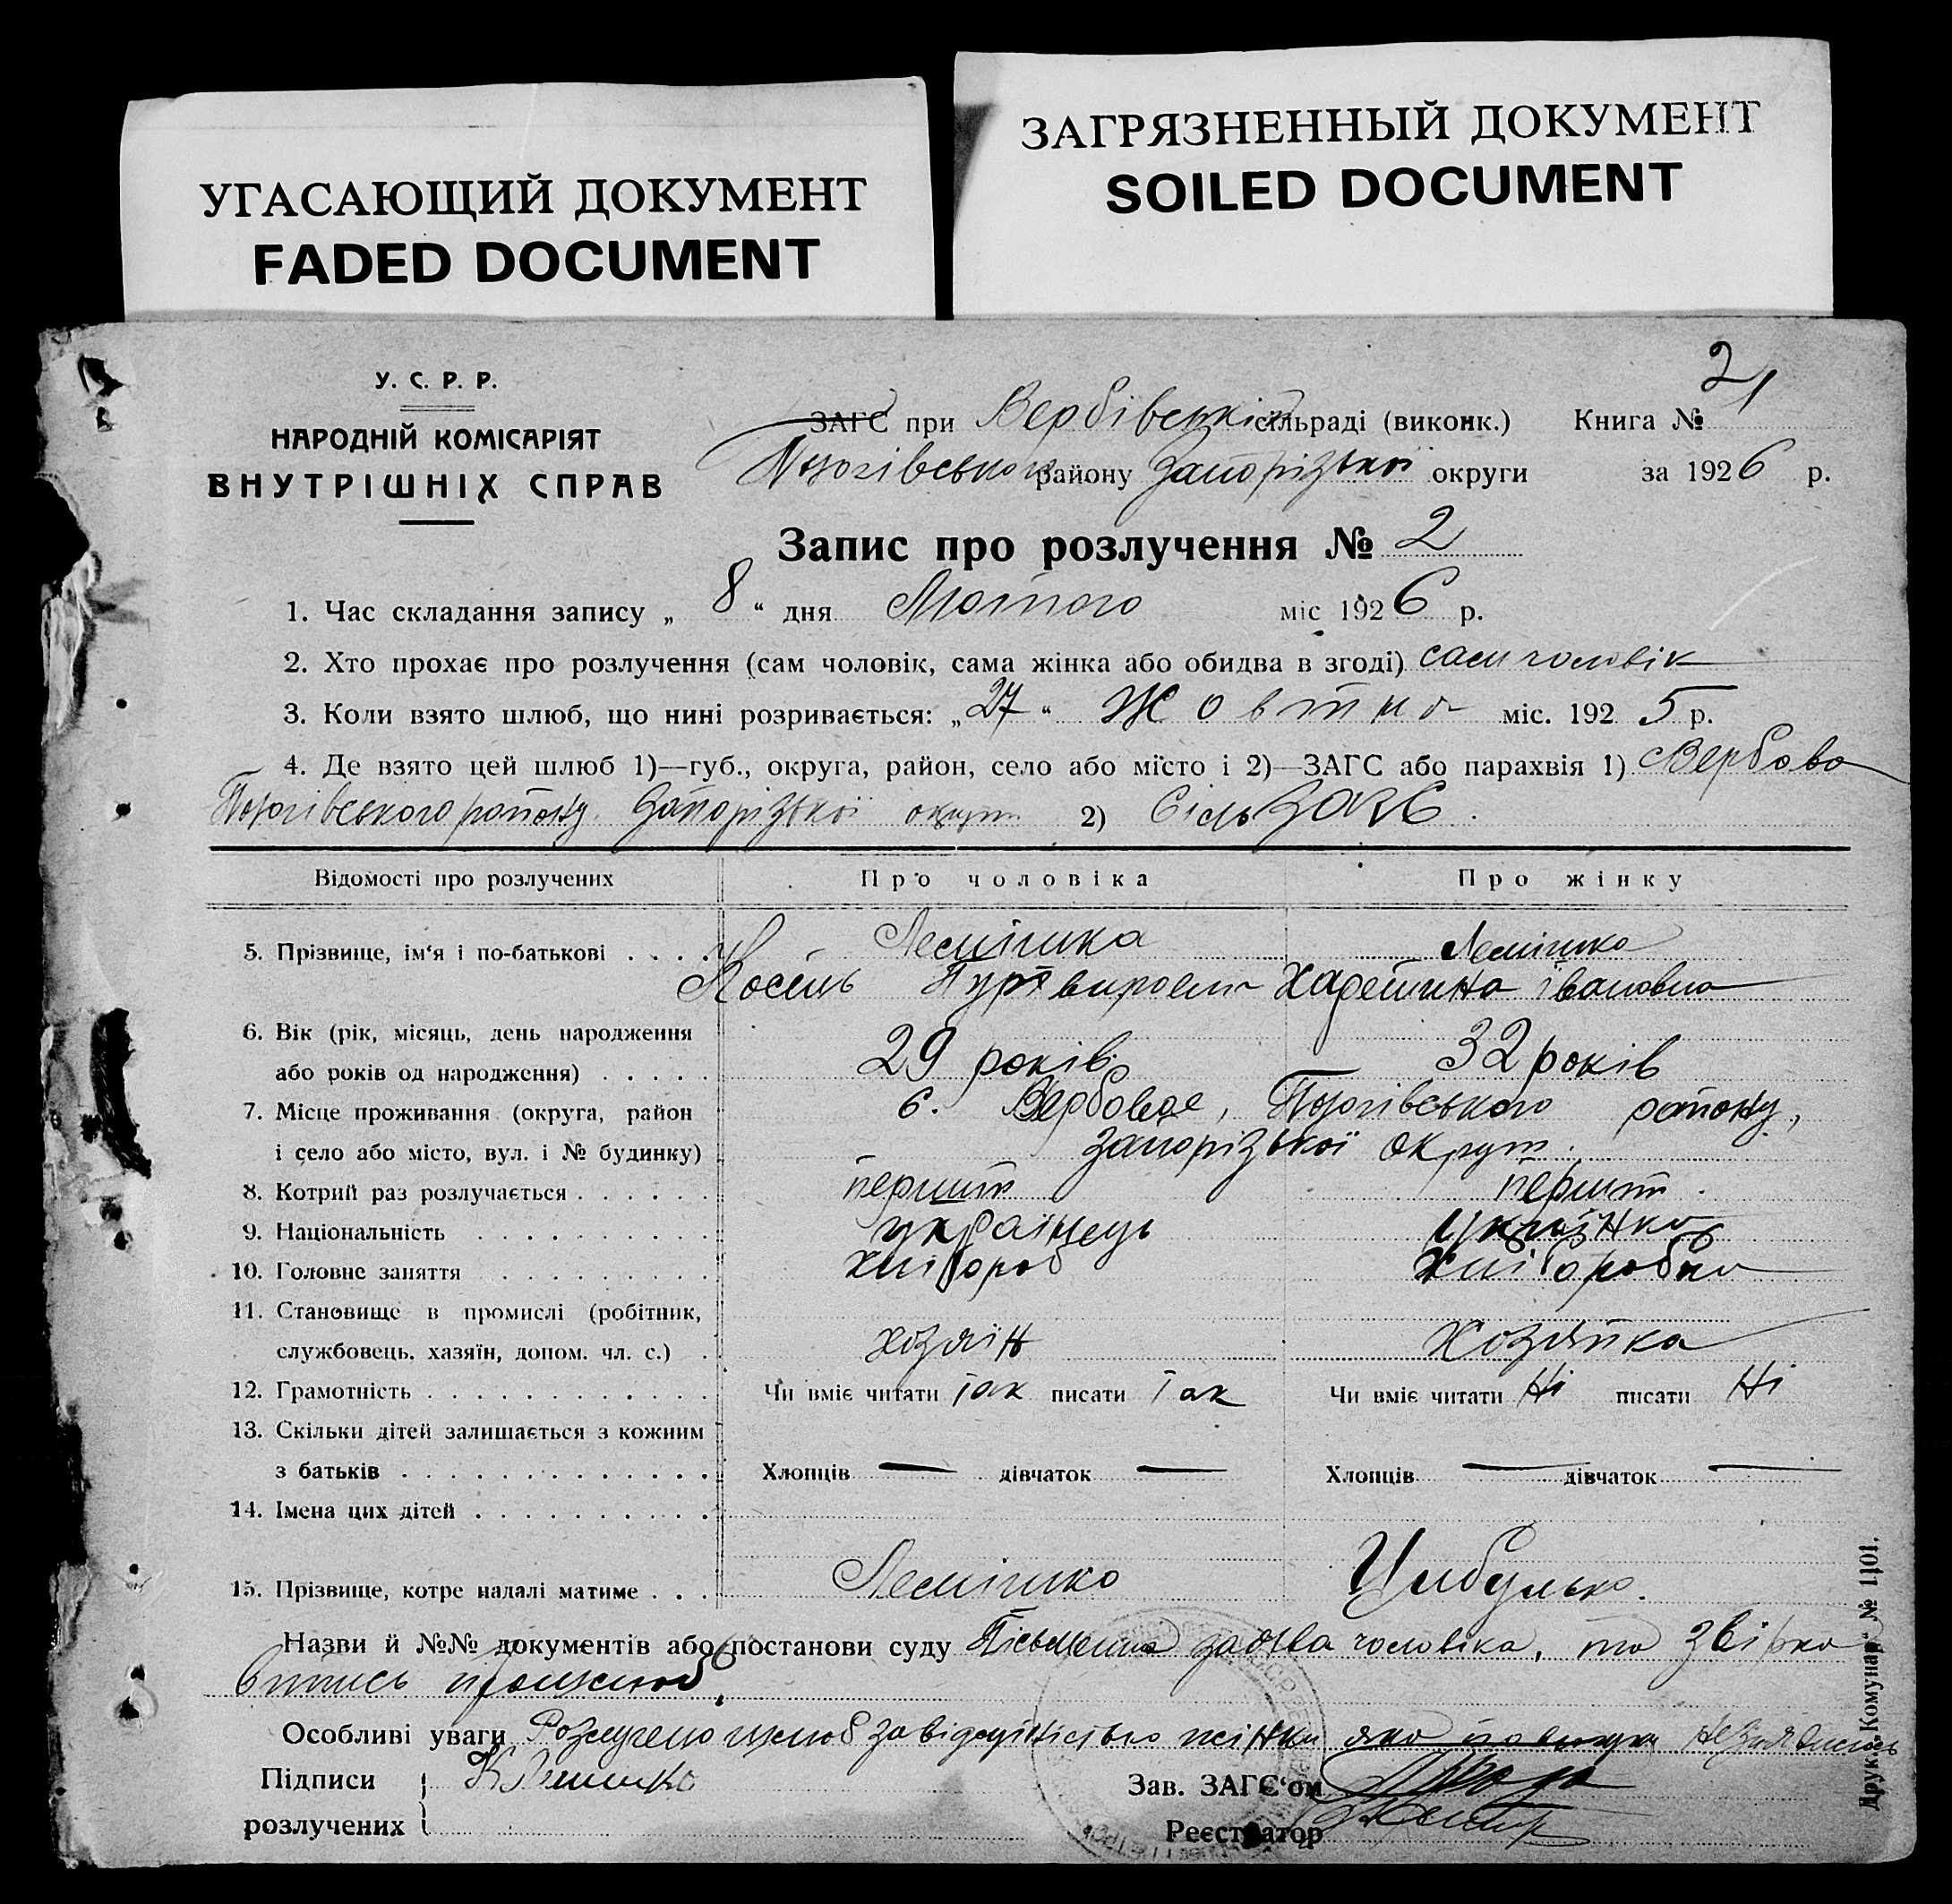 УГАСАЮЩИЙ ДОКУМЕНТ
FADED DOCUMENT
ЗАГРЯЗНЕННЫЙ ДОКУМЕНТ
SOILED DOCUMENT
У. С. Р. Р.
НАРОДНІЙ КОМІСАРІЯТ
ВНУТРІШНІХ СПРАВ
2
ЗАГС при Вербівській сільраді (виконк.) Книга №
Пологівського району Запорізької округи за 1926 р.
Запис про розлучення № 2
1. Час складання запису „ 8 “ дня Лютого міс 1926 р.
2. Хто прохає про розлучення (сам чоловік, сама жінка або обидва в згоді) сам чоловік
3. Коли взято шлюб, що нині розривається: „27“ Жовтня міс. 1925 р.
4. Де взято цей шлюб 1)—губ., округа, район, село або місто і 2)—ЗАГС або парахвія 1) Вербова
Пологівського району Запорізької округи 2) СільЗАГС.
Відомості про розлучених Про чоловіка Про жінку
5. Прізвище, ім‘я і по-батькові . . . . Лемішка Лемішко
Івановна
6. Вік (рік, місяць, день народження
або років од народження) . . . . . 29 років 32 років
7. Місце проживання (округа, район с. Вербовое, Пологівського району,
і село або місто, вул. і № будинку) Запорізької округи.
8. Котрий раз розлучається . . . . . . перший перший.
9. Національність . . . . . . . . . . українець українка
10. Головне заняття . . . . . . . . . хлібороб хліборобка
11. Становище в промислі (робітник,
службовець, хазяїн, допом. чл. с.) . хозяїн Хозяйка
12. Грамотність . . . . . . . . . . . . Чи вміє читати Так писати Так Чи вміє читати Ні писати Ні
13. Скільки дітей залишається з кожним
з батьків . . . . . . . . . . . . . Хлопців — дівчаток — Хлопців — дівчаток —
14. Імена цих дітей . . . . . . . . . .
15. Прізвище, котре надалі матиме . . . Лемішко Цибулько.
Назви й №№ документів або постанови суду Письменна заява чоловіка, та звірка
впись про шлюб.
Особливі уваги Розлучено шлюб за відсутністью жінки яка
Підписи
розлучених
Зав. ЗАГС‘ом
Реєстратор
Друк. „Комунар“ № 1101.